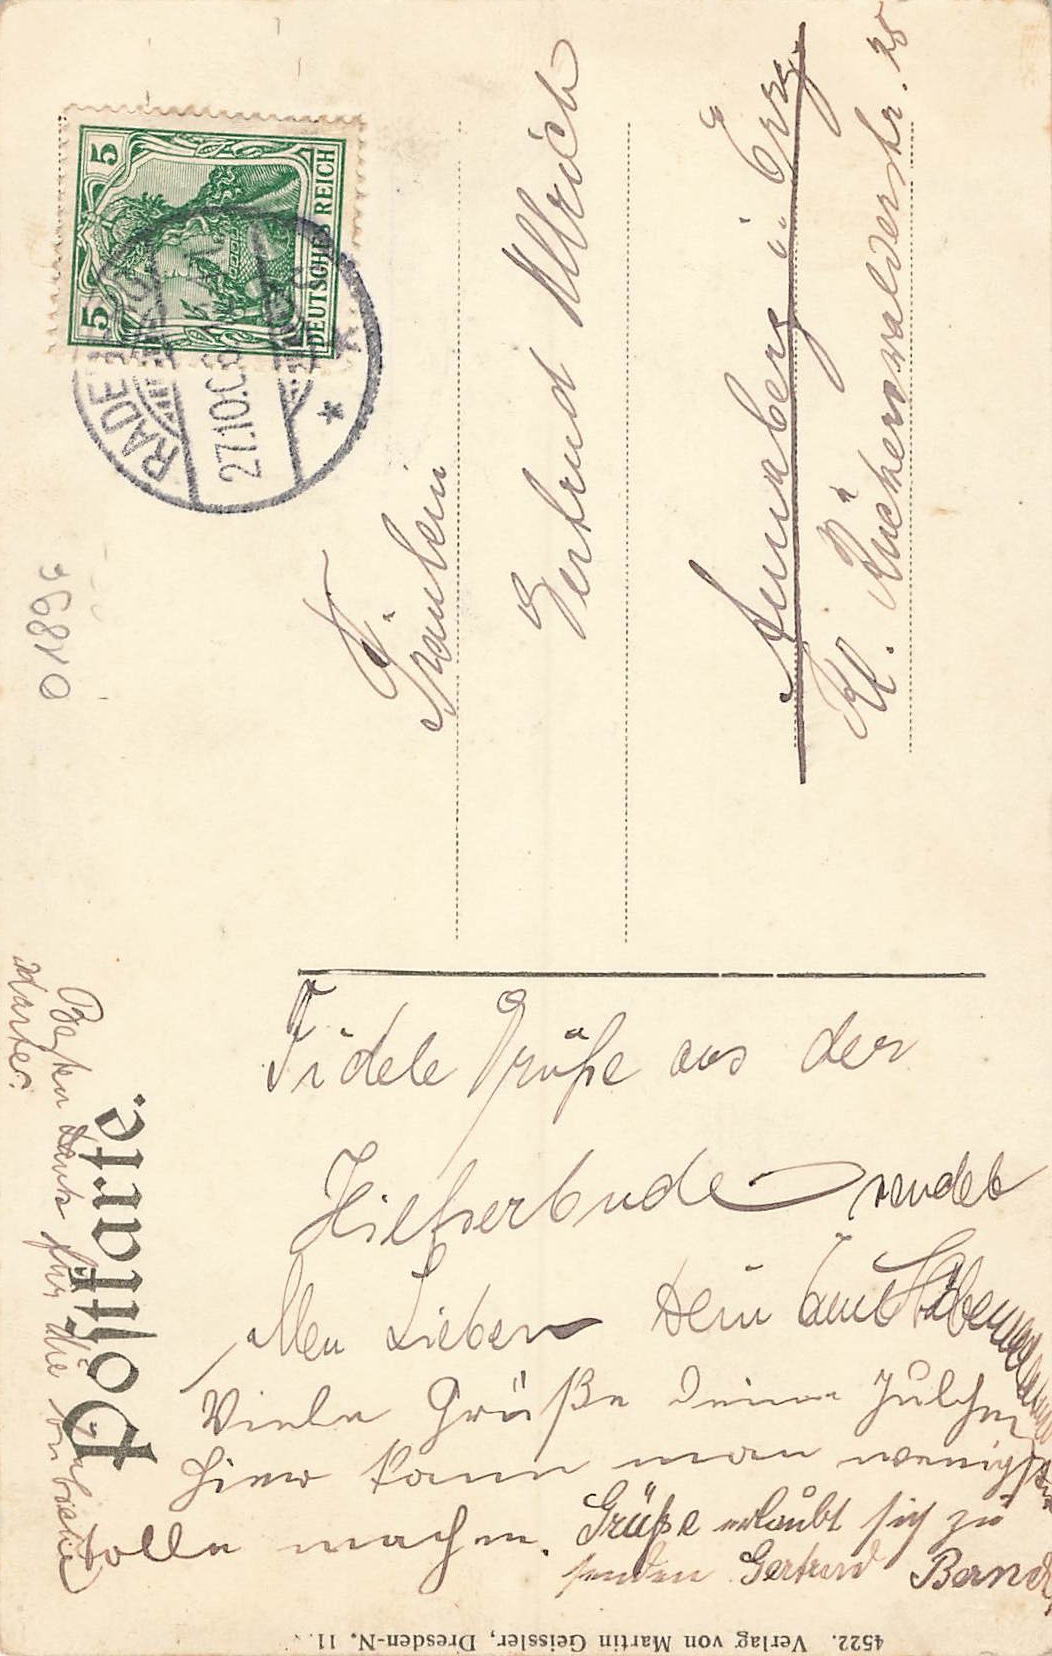 Postkarte.
5 5
DEUTSCHES REICH
RADE
27.10.0
Fräulein
Gertrud Ullrich
Annaberg i. Erzg.
Kl. Rückerswalderstr. 28
Fidele Grüße aus der
sendet
Allen Lieben Dein
Viele Grüße Deine Julchen
Hier kann man wenigstens
tolle machen.
Grüße erlaubt sich zu
senden Gertrud
Besten Dank für die
Karte.
4522. Verlag von Martin Geissler, Dresden-N. 11.